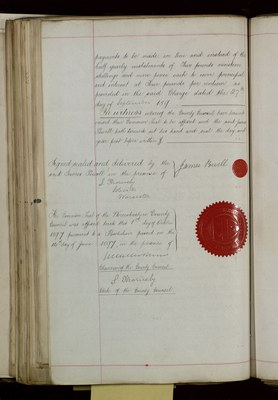 payments to be made in lieu and instead of the
half yearly instalments of Three pounds nineteen
shillings and seven pence each to cover principal
and interest at Three pounds per centum as
provided in the said Charge dated the 25th
day of September 189
In witness whereof the County Council have hereunto
caused their Common Seal to be affixed and the said James
Powell hath hereunto set his hand and seal the day and
year first before written
Signed sealed and delivered by the
said James Powell in the presence of
James Powell
The Common Seal of the Worcestershire County
Council was affixed hereto this day of October
1897 pursuant to a Resolution passed on the
day of June 1897, in the presence of
Chairman of the County Council
Clerk of the County Council